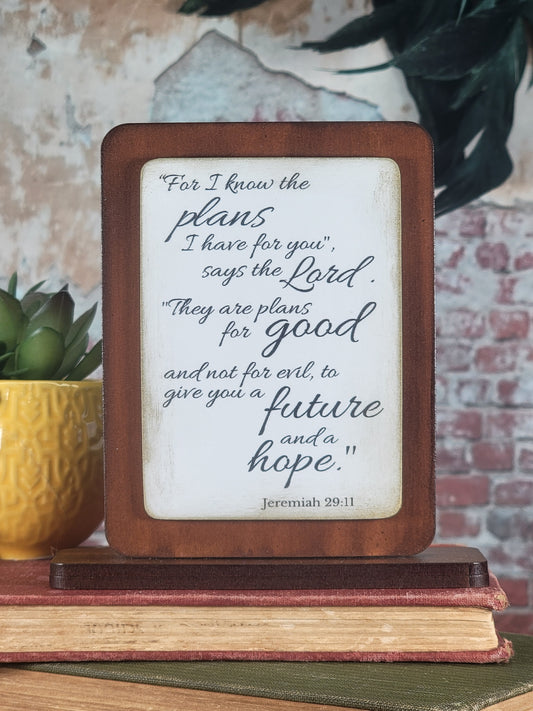 “For I know the
plans
I have for you",
says the Lord.
"They are plans
for good
and not for evil, to
give you a
future
and a
hope."
Jeremiah 29:11